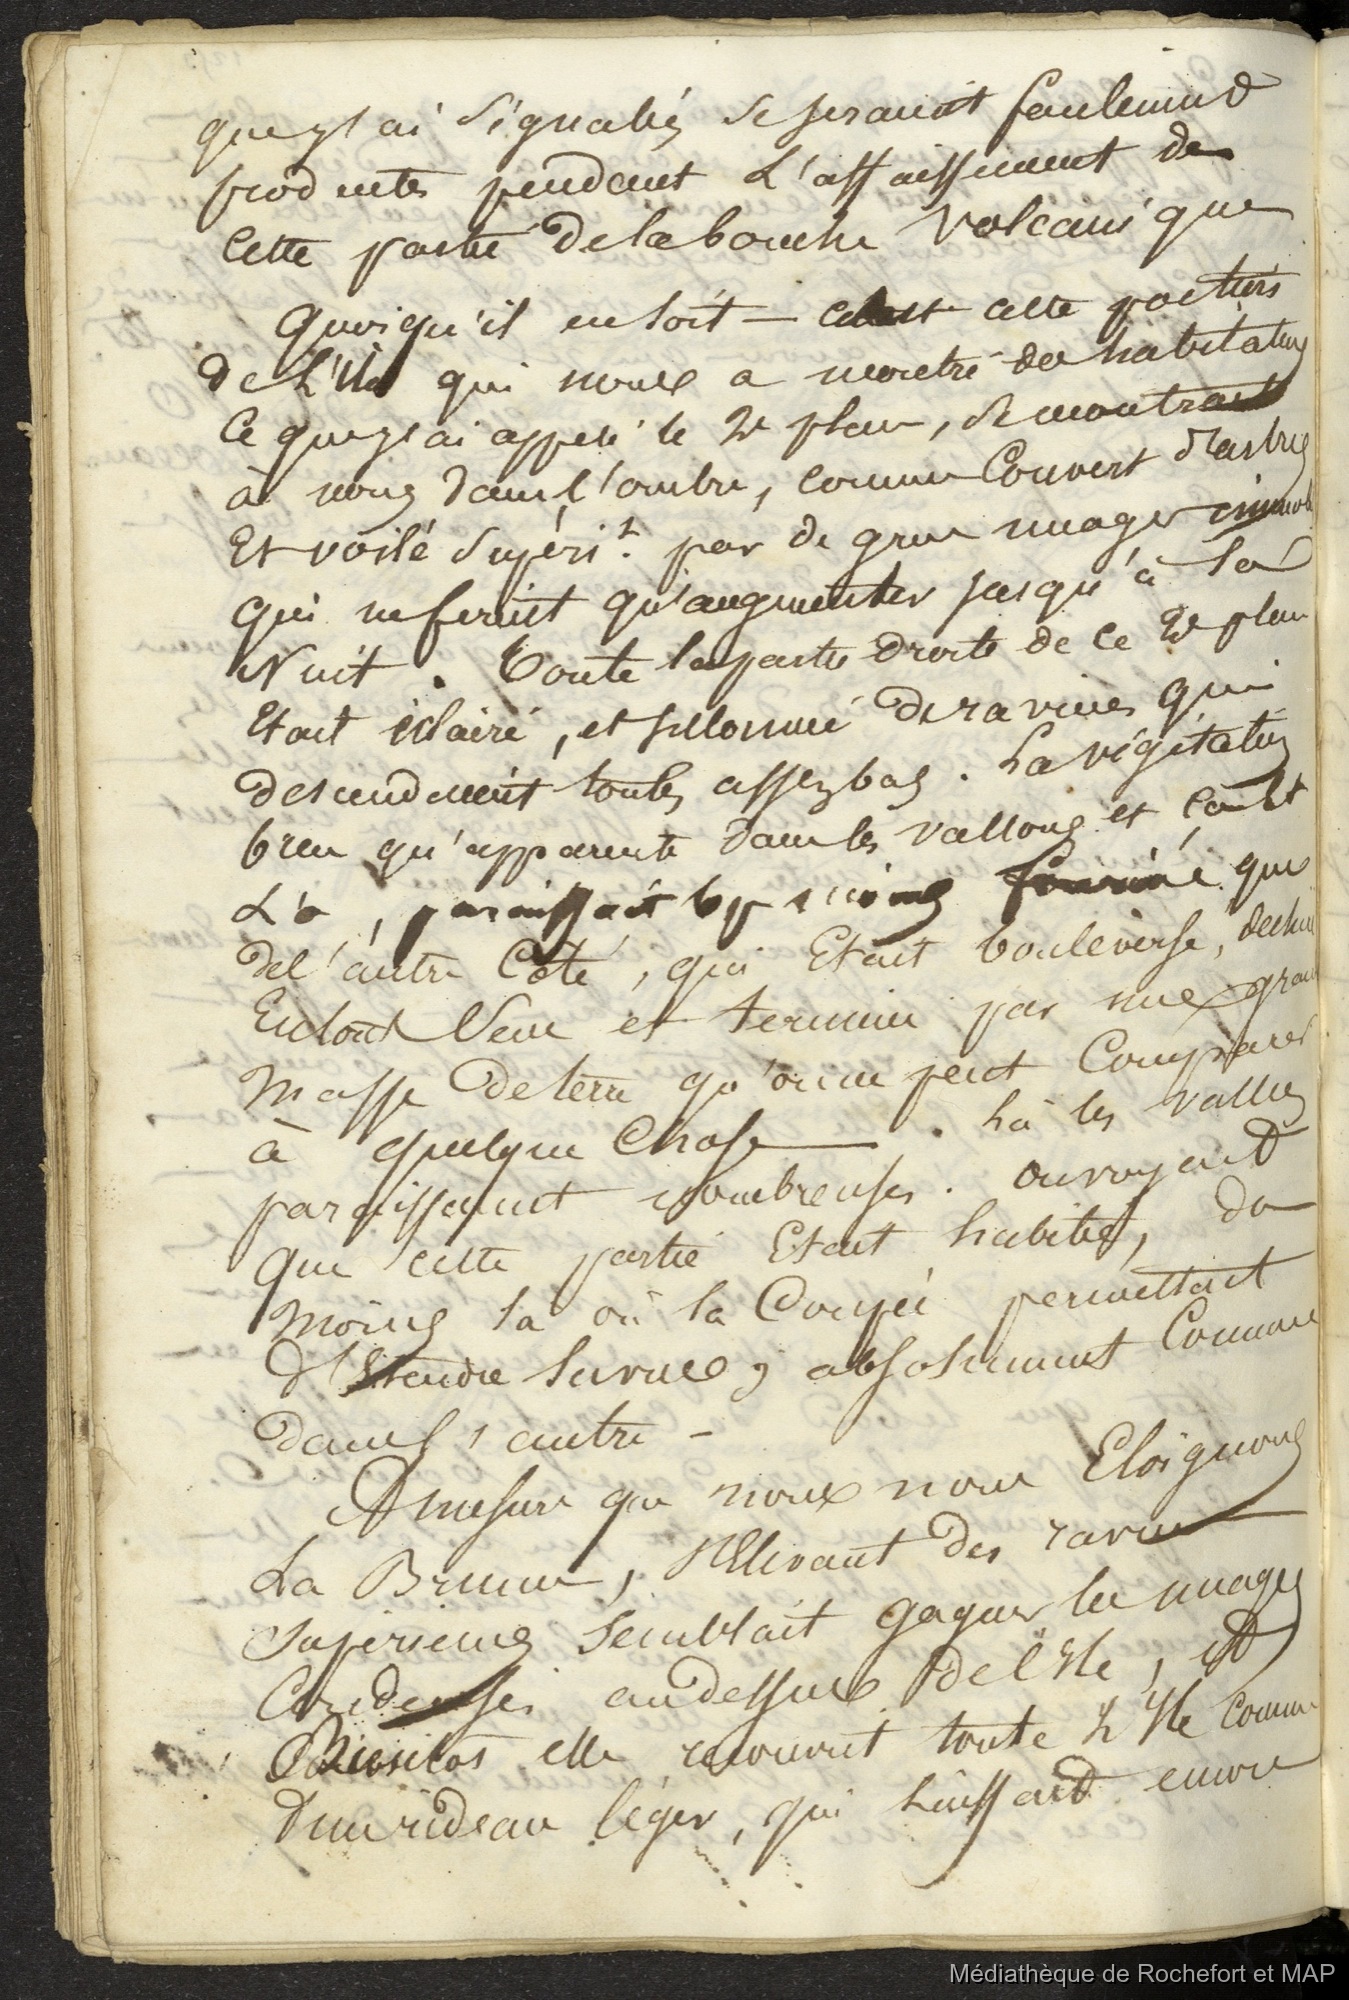 que j'ai signalés se seraient seulement
produites pendant L'affaissement de
Cette partie de la bouche Volcanique
Quoiqu'il en soit — cette partie
de L'île qui nous a montré des habitations
Ce que j'ai appelé le 2e plan, se montrait
à nous dans l'ombre, comme Couvert d'arbres
Et voilé supérit. par de gros nuages
qui ne firent qu'augmenter jusqu'à la
Nuit. Toute la partie droite de ce 2e plan
Etait éclairé, et sillonné de ravines qui
descendaient toutes assez bas. La végétation
bien qu'apparente dans les vallons et çà et
Là, paraissait bp moins que
de l'autre Côté, qui Etait bouleversé, déchiré
En tout Sens et terminé par une grande
Masse de terre qu'on ne peut Comparer
à quelque Chose. Là les vallées
paraissaient nombreuses. on voyait
que cette partie Etait habitée, du
Moins là où la Coupée permettait
d'Etendre la vue, absolument Comme
dans l'autre –
A mesure que nous nous Eloignons
La Brume, s'Elevant des ravins
Supérieurs semblait gagner les nuages
Condensés au dessus de l'Ile, et
Bientôt elle recouvrit toute L'Ile comme
D'un rideau léger, qui laissait encore
Médiathèque de Rochefort et MAP